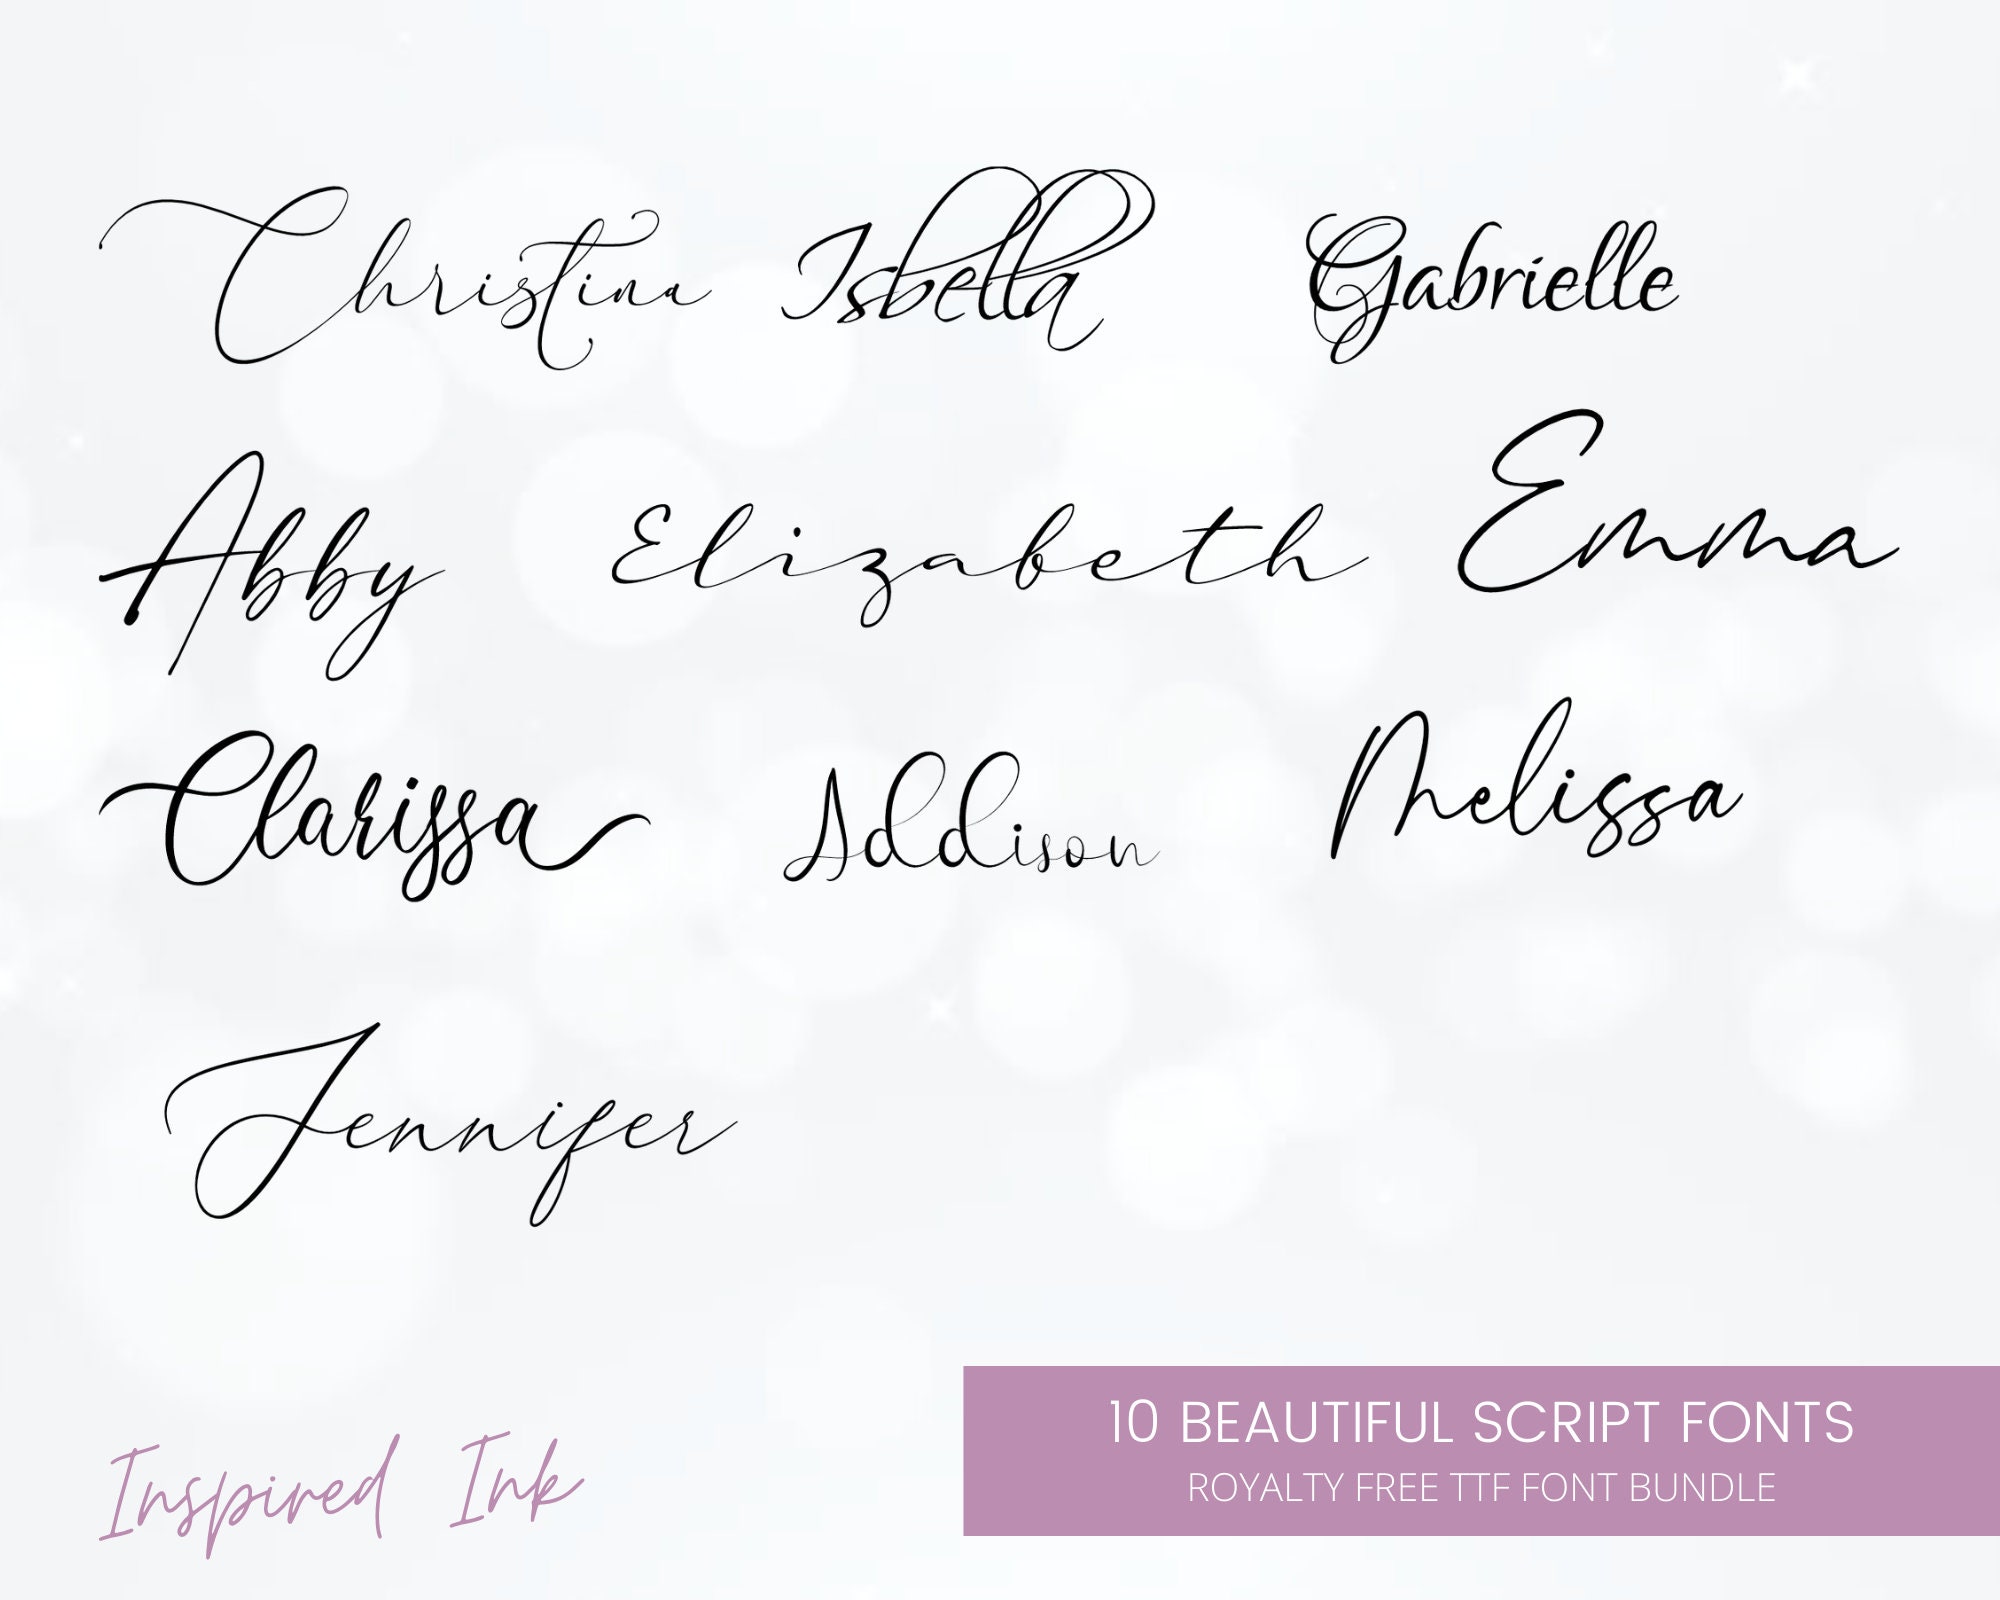 Christina Isbella Gabrielle
Abby Elizabeth Emma
Clarissa Addison Melissa
Jennifer
10 BEAUTIFUL SCRIPT FONTS
ROYALTY FREE TTF FONT BUNDLE
Inspired Ink